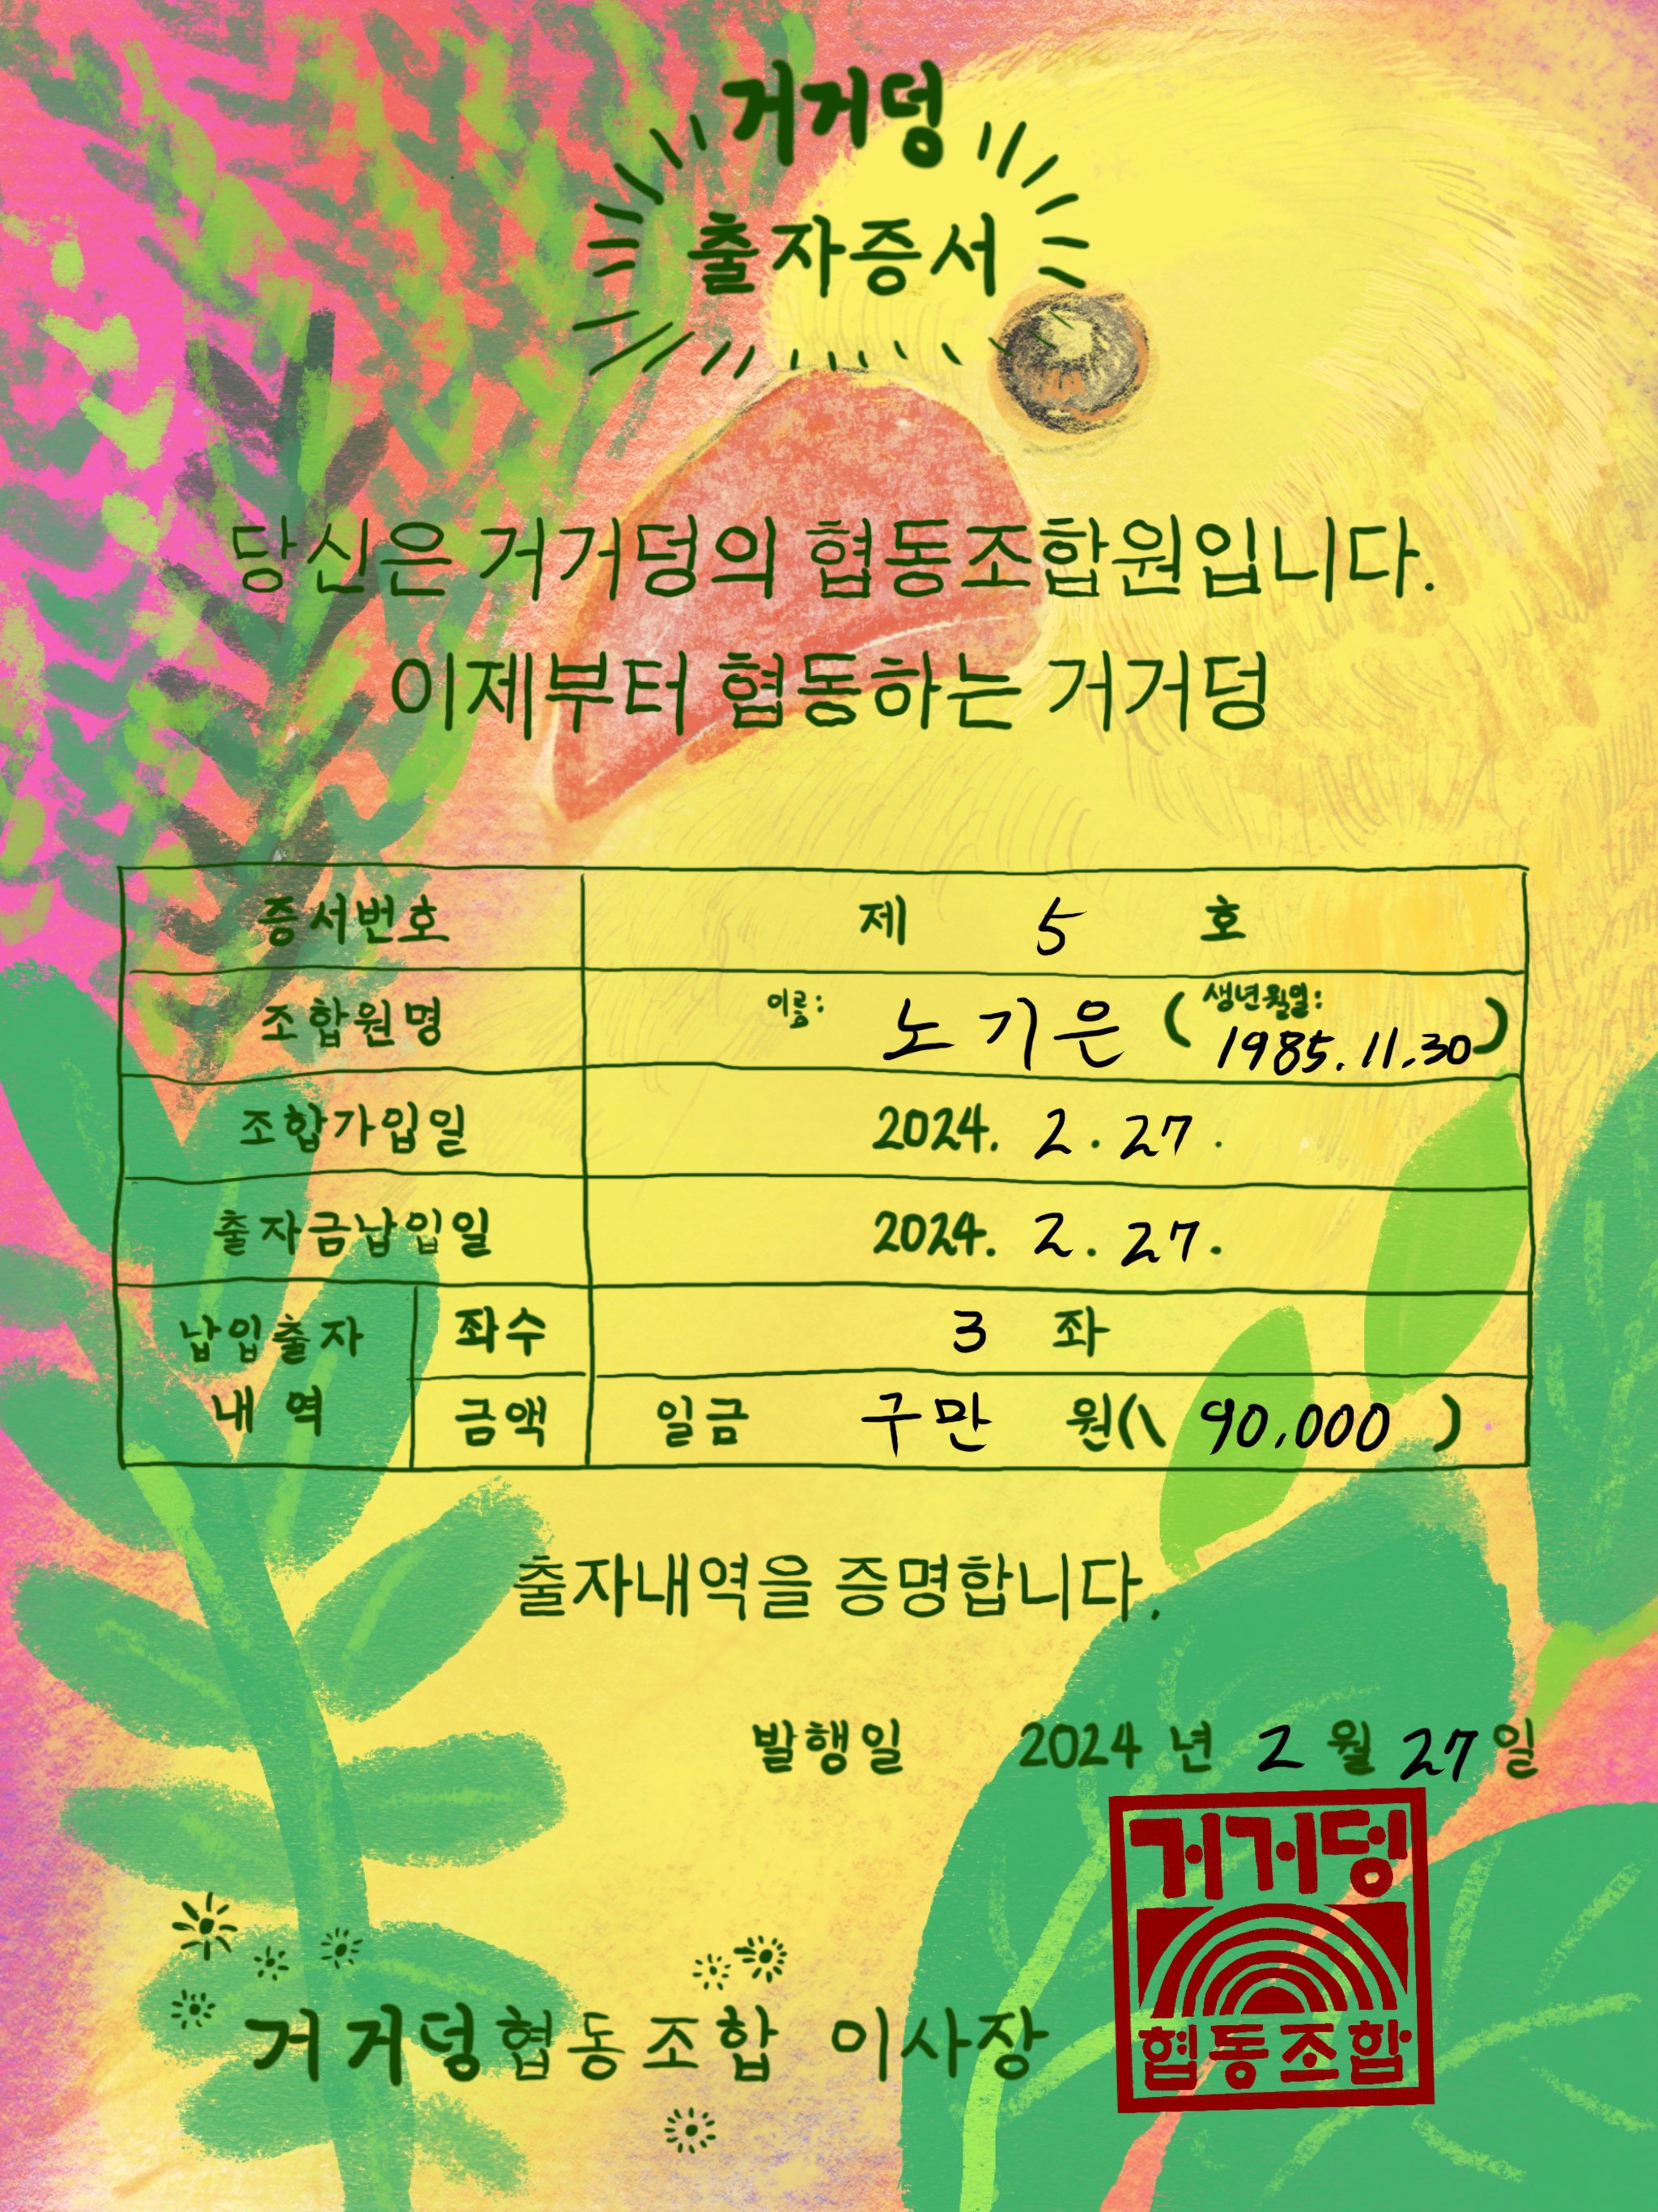 거거덩
출자증서
당신은 거거덩의 협동조합원입니다.
이제부터 협동하는 거거덩
증서번호 제 5 호
조합원명 이름: 노기은 (생년월일: 1985.11.30)
조합가입일 2024. 2. 27.
출자금납입일 2024. 2. 27.
납입출자 내역 좌수 3 좌
금액 일금 구만 원(\ 90,000 )
출자내역을 증명합니다.
발행일 2024 년 2 월 27 일
거거덩협동조합 이사장
거거덩
협동조합